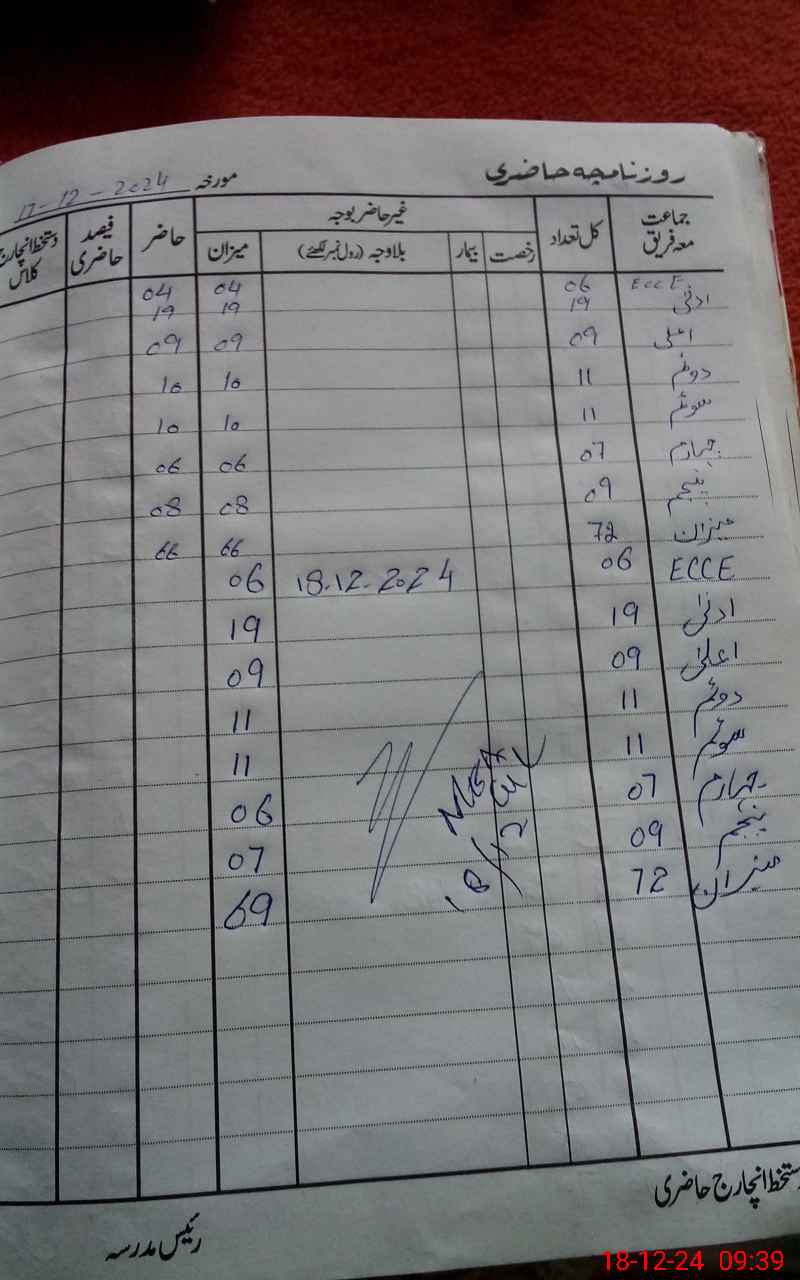 روزنامچہ حاضری مورخہ 17-12-2024
جماعت معہ فریق کل تعداد غیر حاضر بوجہ حاضر فیصد حاضری دستخط انچارج کلاس
رخصت بیمار بلاوجہ (رول نمبر لکھئے) میزان
ECCE 06 04 04
ادنیٰ 19 19 19
اعلیٰ 09 09 09
دوئم 11 10 10
سوئم 11 10 10
چہارم 07 06 06
پنجم 09 08 08
میزان 72 66 66
ECCE 06 18.12.2024 06
ادنیٰ 19 19
اعلیٰ 09 09
دوئم 11 11
سوئم 11 11
چہارم 07 06
پنجم 09 07
میزان 72 69
18/12
دستخط انچارج حاضری
رئیس مدرسہ
18-12-24 09:39